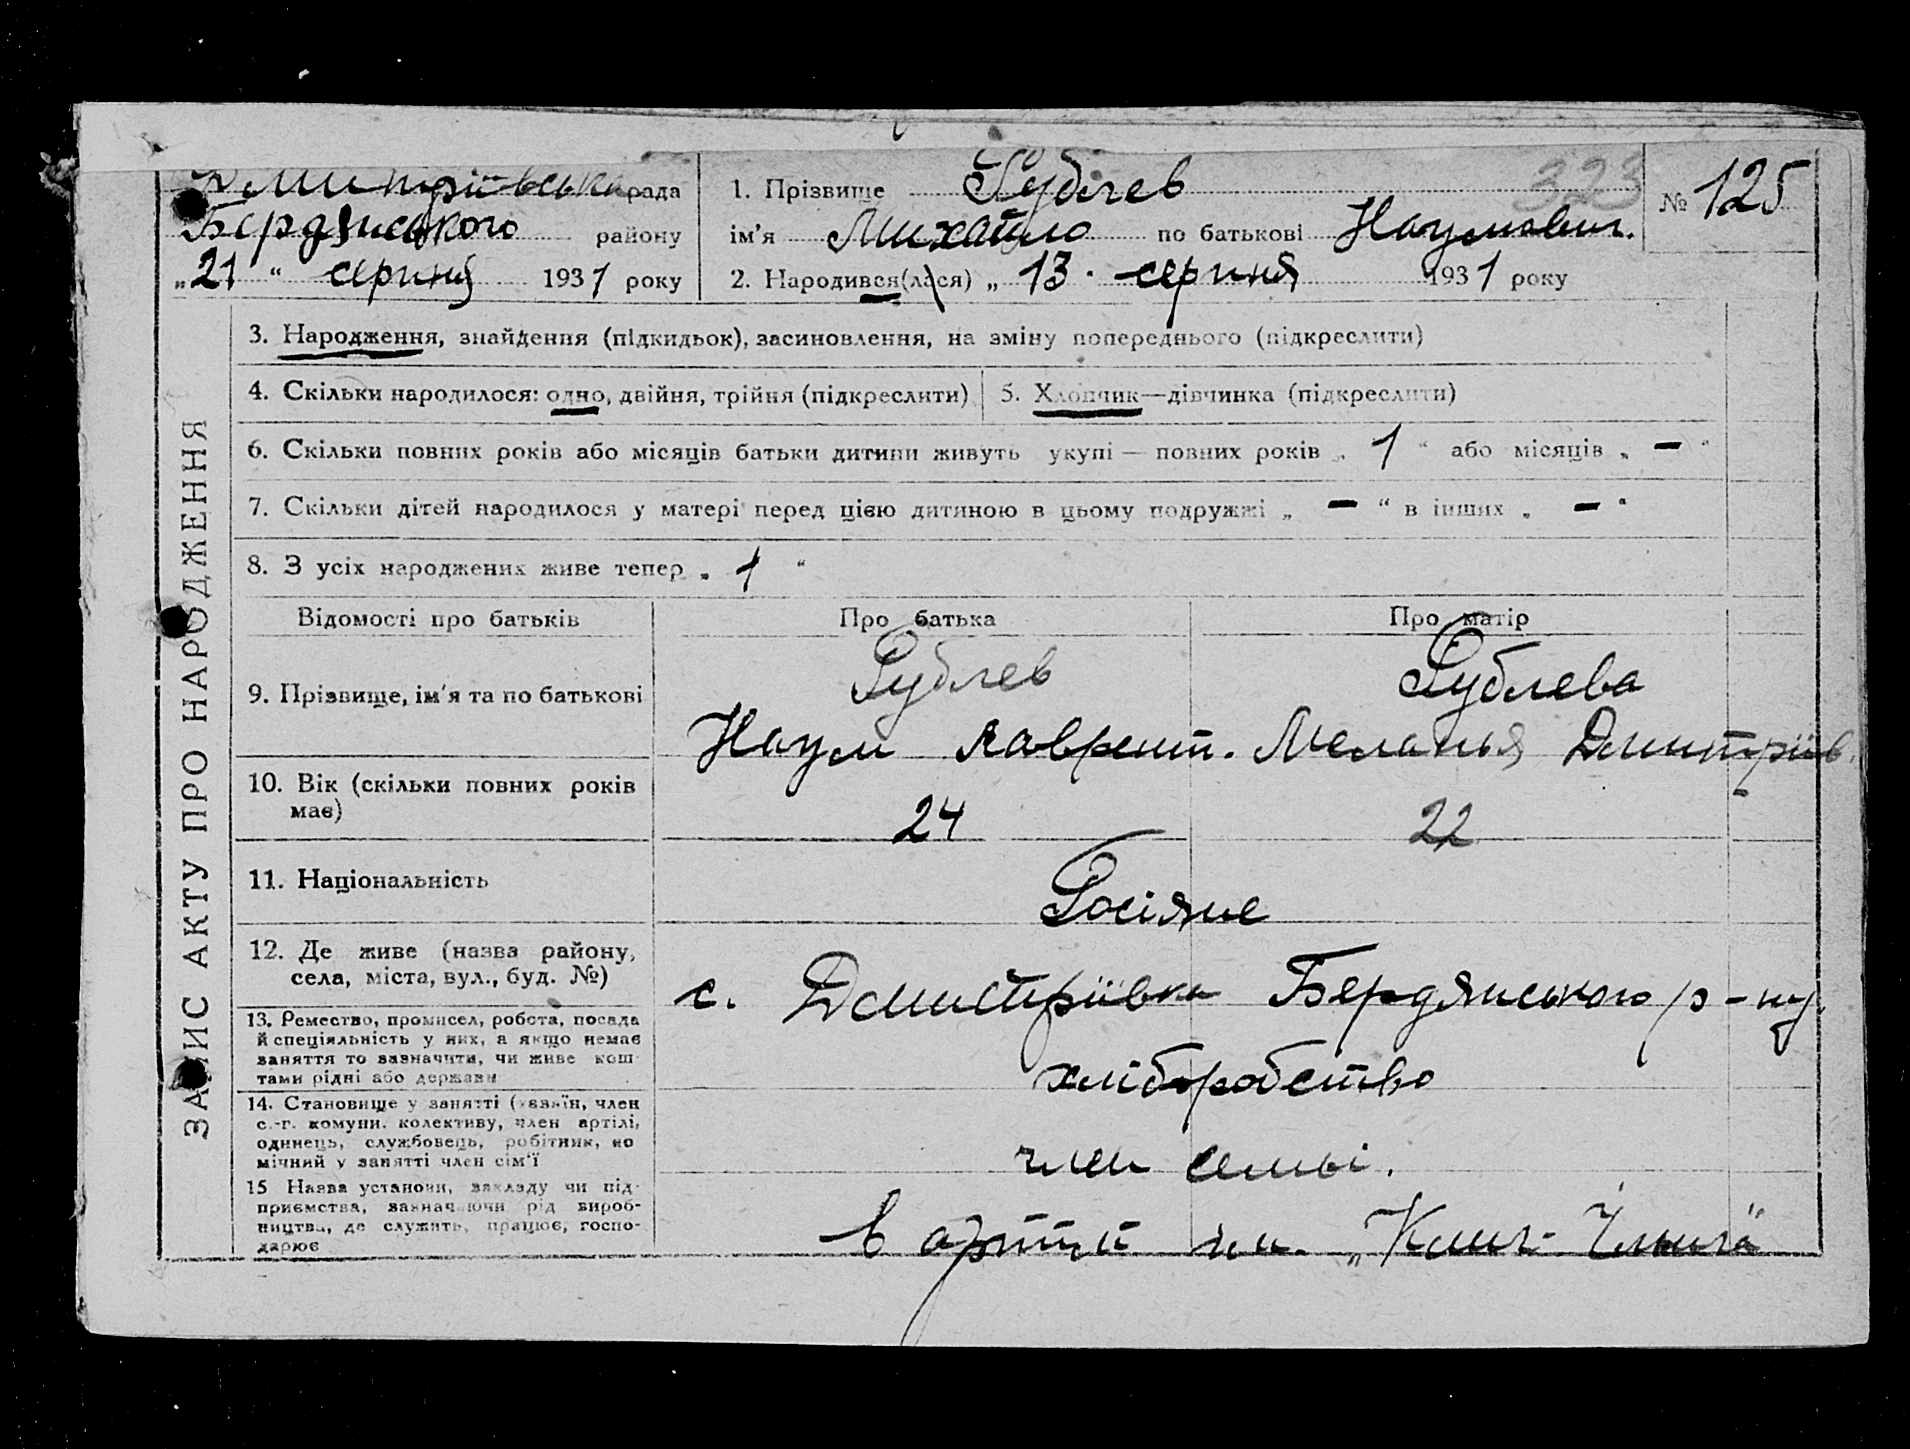 Дмитріївська рада
Бердянського району
„21“ серпня 1931 року
1. Прізвище Рублев
323
№ 125
ім'я Михайло по батькові Наумович.
2. Народився(лася) „13. серпня 1931 року
ЗАПИС АКТУ ПРО НАРОДЖЕННЯ
3. Народження, знайдення (підкидьок), засиновлення, на зміну попереднього (підкреслити)
4. Скільки народилося: одно, двійня, трійня (підкреслити)
5. Хлопчик—дівчинка (підкреслити)
6. Скільки повних років або місяців батьки дитини живуть укупі — повних років „1“ або місяців „—“
7. Скільки дітей народилося у матері перед цією дитиною в цьому подружжі „—“ в інших „—“
8. З усіх народжених живе тепер „1“
Відомості про батьків
Про батька
Про матір
9. Прізвище, ім'я та по батькові
Рублев
Наум Лаврент.
Рублева
Меланья Дмитріїв.
10. Вік (скільки повних років
має)
24
22
11. Національність
Росіяне
12. Де живе (назва району,
села, міста, вул., буд. №)
с. Дмитріївка Бердянського р-ну.
13. Ремество, промисел, робота, посада
й спеціяльність у них, а якщо немає
заняття то зазначити, чи живе кош
тами рідні або держави
хліборобство
14. Становище у занятті (хазяїн, член
с.-г. комуни, колективу, член артілі,
одинець, службовець, робітник, по
мічний у занятті член сім'ї
член семьі.
15 Назва установи, закладу чи під-
приємства, зазначаючи рід вироб-
ництва, де служить, працює, госпо-
дарює
в артілі ім.